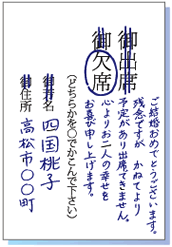 ご結婚おめでとうございます。
残念ですが かねてより
予定があり出席できません。
心よりお二人の幸せを
お喜び申し上げます。
御出席
御欠席
（どちらかを○でかこんで下さい）
御芳名 四国桃子
御住所 高松市○○町